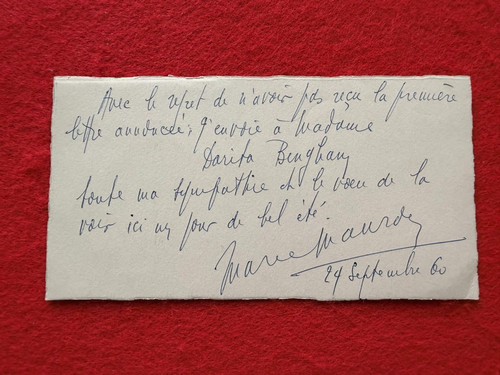 Avec le regret de n'avoir pas reçu la première
lettre annoncée; j'envoie à Madame
Darita Benghany
toute ma sympathie et le vœu de la
voir ici un jour de bel été.
24 Septembre 60